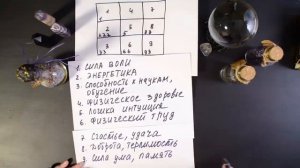 1 4
2 5 8
3 6 9
1. СИЛА ВОЛИ
2. ЭНЕРГЕТИКА
3. СПОСОБНОСТЬ К НАУКАМ,
ОБУЧЕНИЕ
4. ФИЗИЧЕСКОЕ ЗДОРОВЬЕ
5. ЛОГИКА ИНТУИЦИЯ
6. ФИЗИЧЕСКИЙ ТРУД
7. СЧАСТЬЕ, УДАЧА
8. ДОБРОТА, ТЕРПИМОСТЬ
9. СИЛА УМА, ПАМЯТЬ